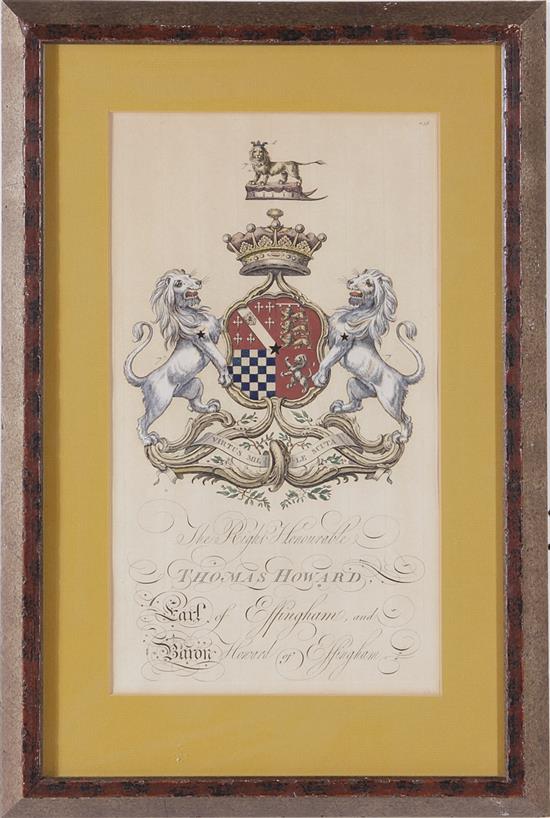 VIRTUS MILLE SCUTA
The Right Honourable
THOMAS HOWARD
Earl of Effingham, and
Baron Howard of Effingham